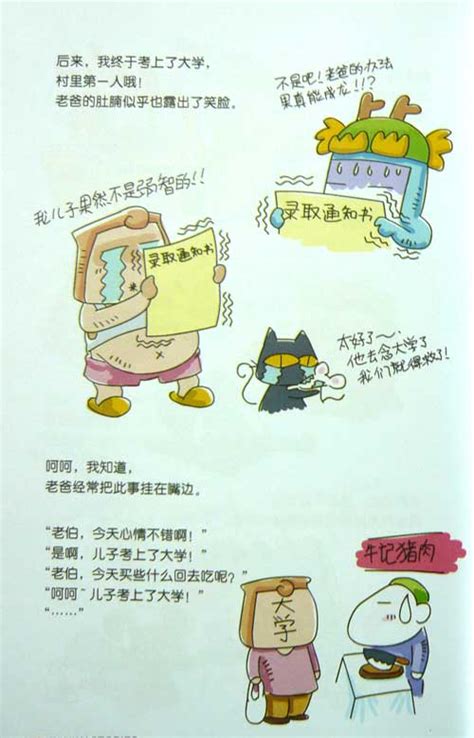 后来，我终于考上了大学，
村里第一人哦！
老爸的肚腩似乎也露出了笑脸。
不是吧！老爸的办法
果真能成龙！！？
录取通知书
我儿子果然不是弱智的！！
录取通知书
太好了～、
他去念大学了
我们就得救了！
呵呵，我知道，
老爸经常把此事挂在嘴边。
“老伯，今天心情不错啊！”
“是啊，儿子考上了大学！”
“老伯，今天买些什么回去吃呢？”
“呵呵~儿子考上了大学！”
“……”
牛记猪肉
大学